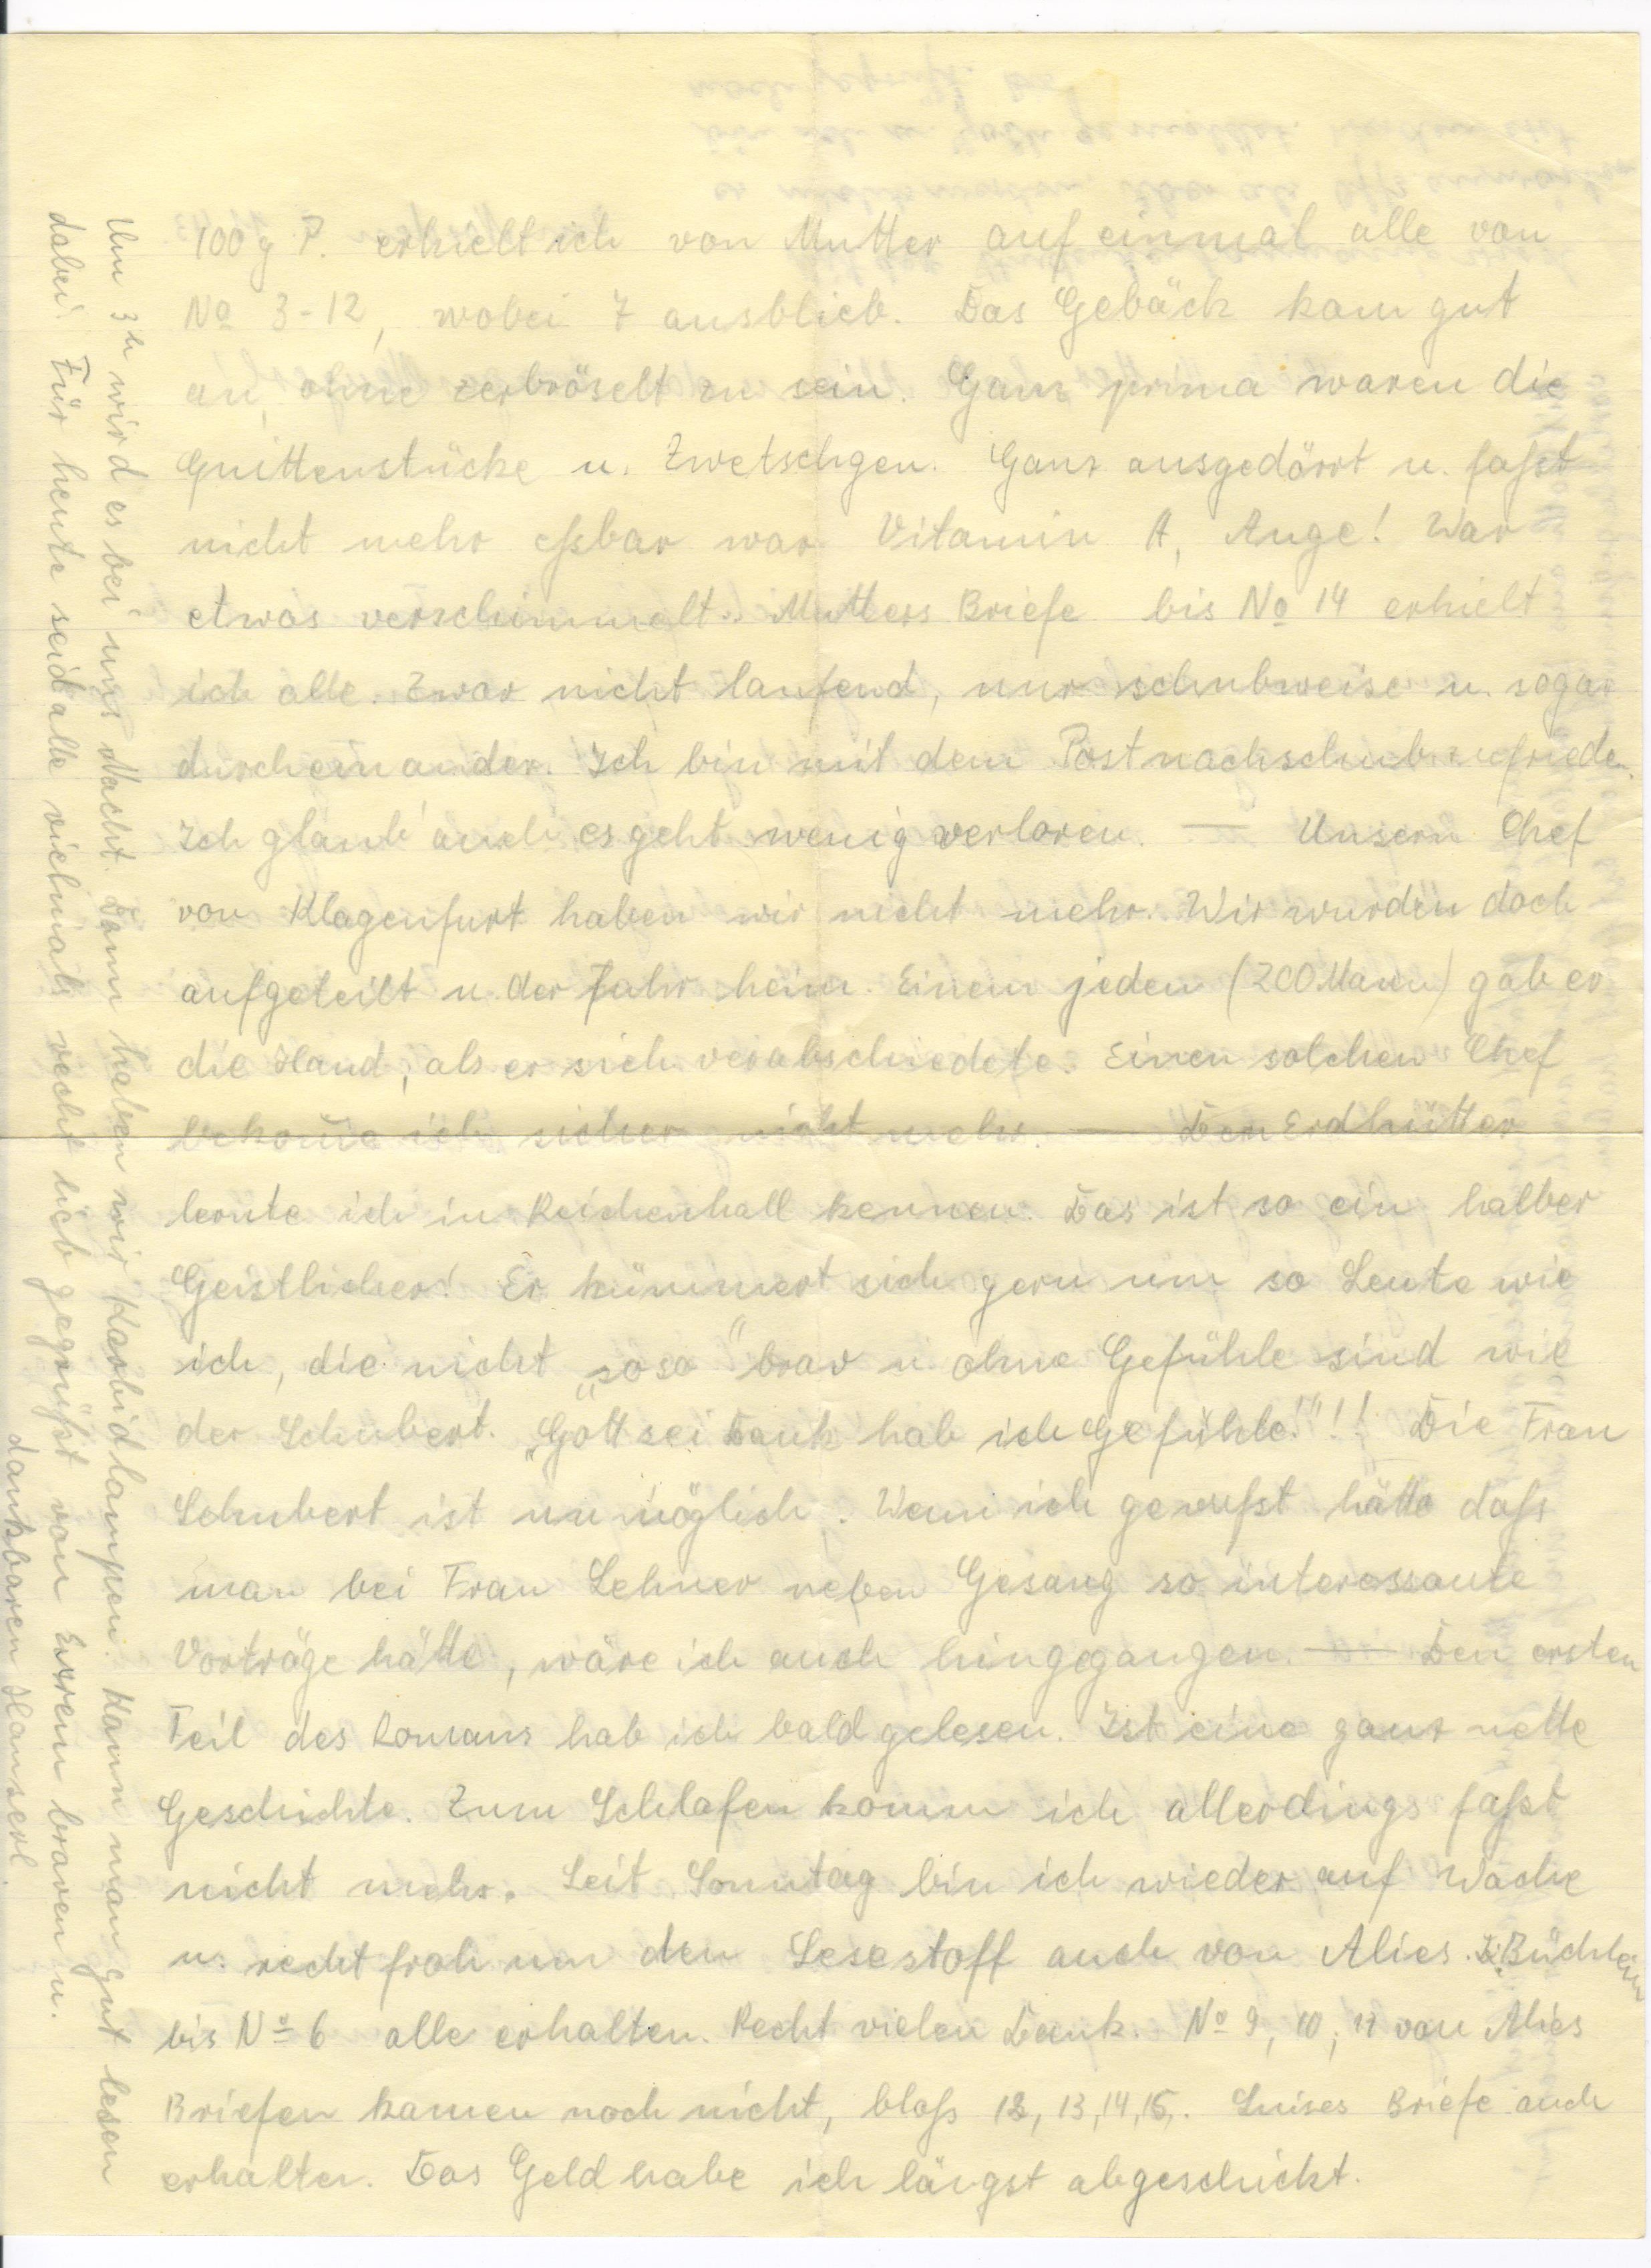 100 g P. erhielt ich von Mutter auf einmal alle von
No 3-12, wobei 7 ausblieb. Das Gebäck kam gut
an, ohne zerbröselt zu sein. Ganz prima waren die
Quittenstücke u. Zwetschgen. Ganz ausgedörrt u. faßt
nicht mehr eßbar war Vitamin A, Auge! War
etwas verschimmelt. Mutters Briefe bis No 14 erhielt
ich alle. Zwar nicht laufend, nur schubweise u. sogar
durcheinander. Ich bin mit dem Postnachschub zufrieden.
Ich glaub' auch es geht wenig verloren. — Unsern Chef
von Klagenfurt haben wir nicht mehr. Wir wurden doch
aufgeteilt u. der fuhr heim. Einem jeden (200 Mann) gab er
die Hand, als er sich verabschiedete. Einen solchen Chef
bekome ich sicher nicht mehr. — Den Erdhütter
lernte ich in Reichenhall kennen. Das ist so ein halber
Geistlicher! Er kümmert sich gern um so Leute wie
ich, die nicht „soso" brav u. ohne Gefühle sind wie
der Schubert. „Gott sei Dank hab ich Gefühle!"!! Die Frau
Schubert ist unmöglich. Wenn ich gewußt hätte daß
man bei Frau Lehner neben Gesang so interessante
Vorträge hätte, wäre ich auch hingegangen. — Den ersten
Teil des Romans hab ich bald gelesen. Ist eine ganz nette
Geschichte. Zum Schlafen komm ich allerdings faßt
nicht mehr. Seit Sonntag bin ich wieder auf Wache
u. recht froh um den Lesestoff auch von Alies. D. Büchlein
bis No 6 alle erhalten. Recht vielen Dank. No 9, 10, 11 von Alies
Briefen kamen noch nicht, bloß 12, 13, 14, 15. Luises Briefe auch
erhalten. Das Geld habe ich längst abgeschickt.
Um 3h wird es bei uns Nacht. Dann haben wir Karbidlampen. Kann man gut lesen
dabei. Für heute seid alle vielmals recht lieb gegrüßt von Eurem braven u.
dankbaren Hanserl.